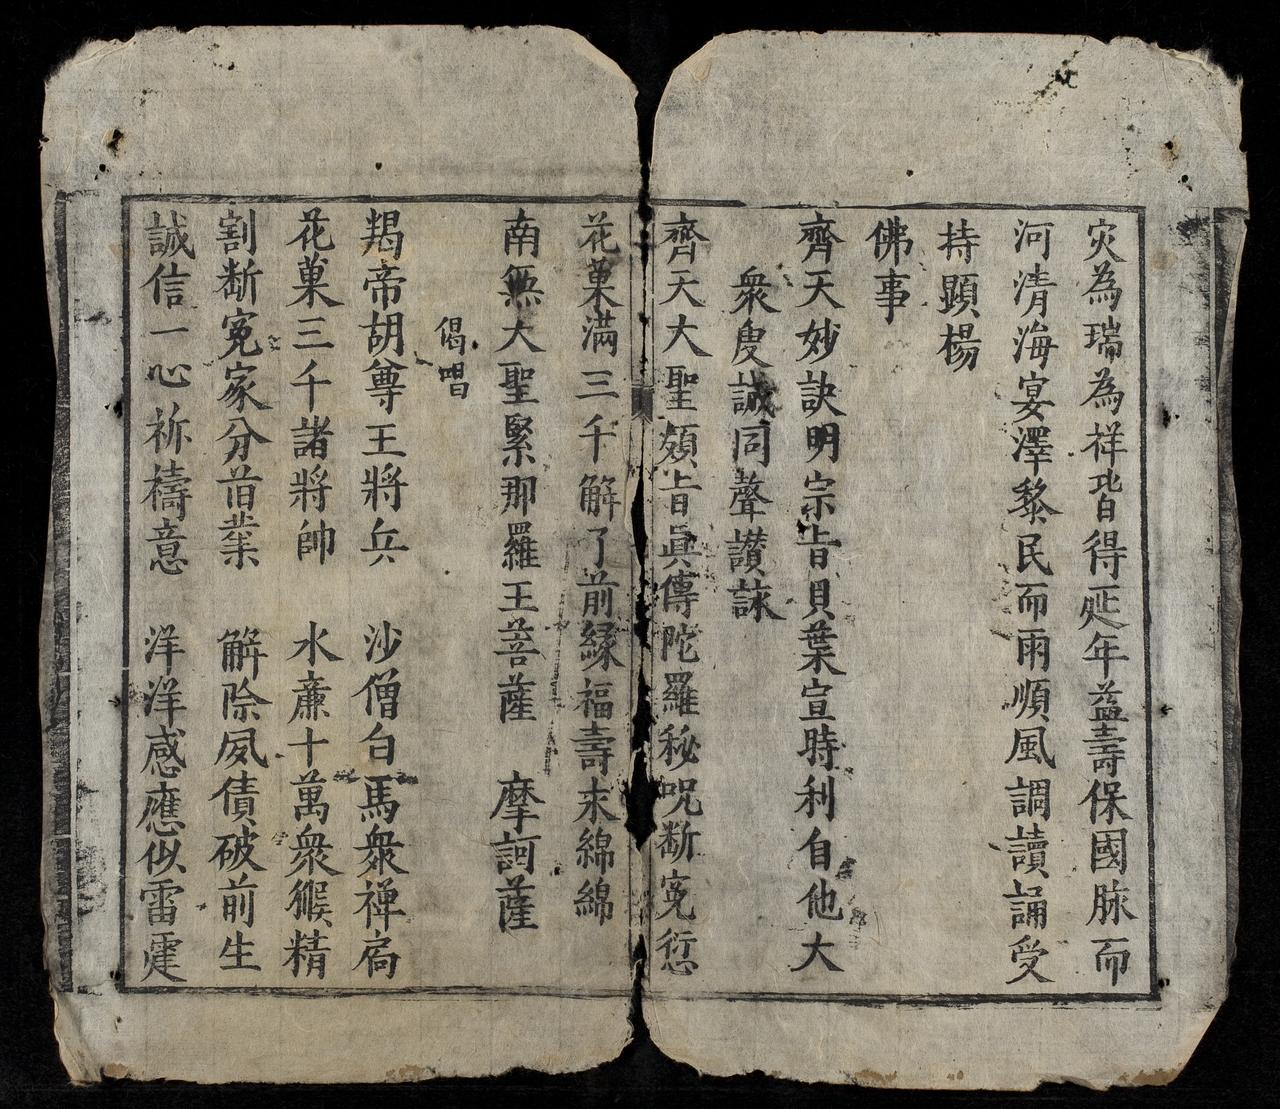 灾為瑞為祥皆得延年益壽保國脉而
河清海宴澤黎民而雨順風調讀誦受
持顕楊
佛事
齊天妙訣明宗旨貝葉宣時利自他大
衆虔誠同聲讃詠
齊天大聖頻旨眞傳陀羅秘呪断寃愆
花菓滿三千解了前緣福壽永綿綿
南無大聖緊那羅王菩薩　摩訶薩
偈唱
羯帝胡尊王將兵　沙僧白馬衆禅扃
花菓三千諸將帥　水廉十萬衆猴精
割断寃家分首業　解除夙債破前生
誠信一心祈禱意　洋洋感應似雷霆